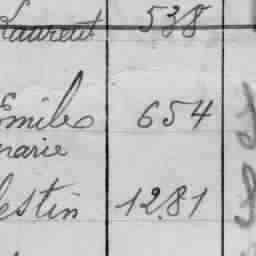 Laurent 538
Emile 654
marie
estin 1281